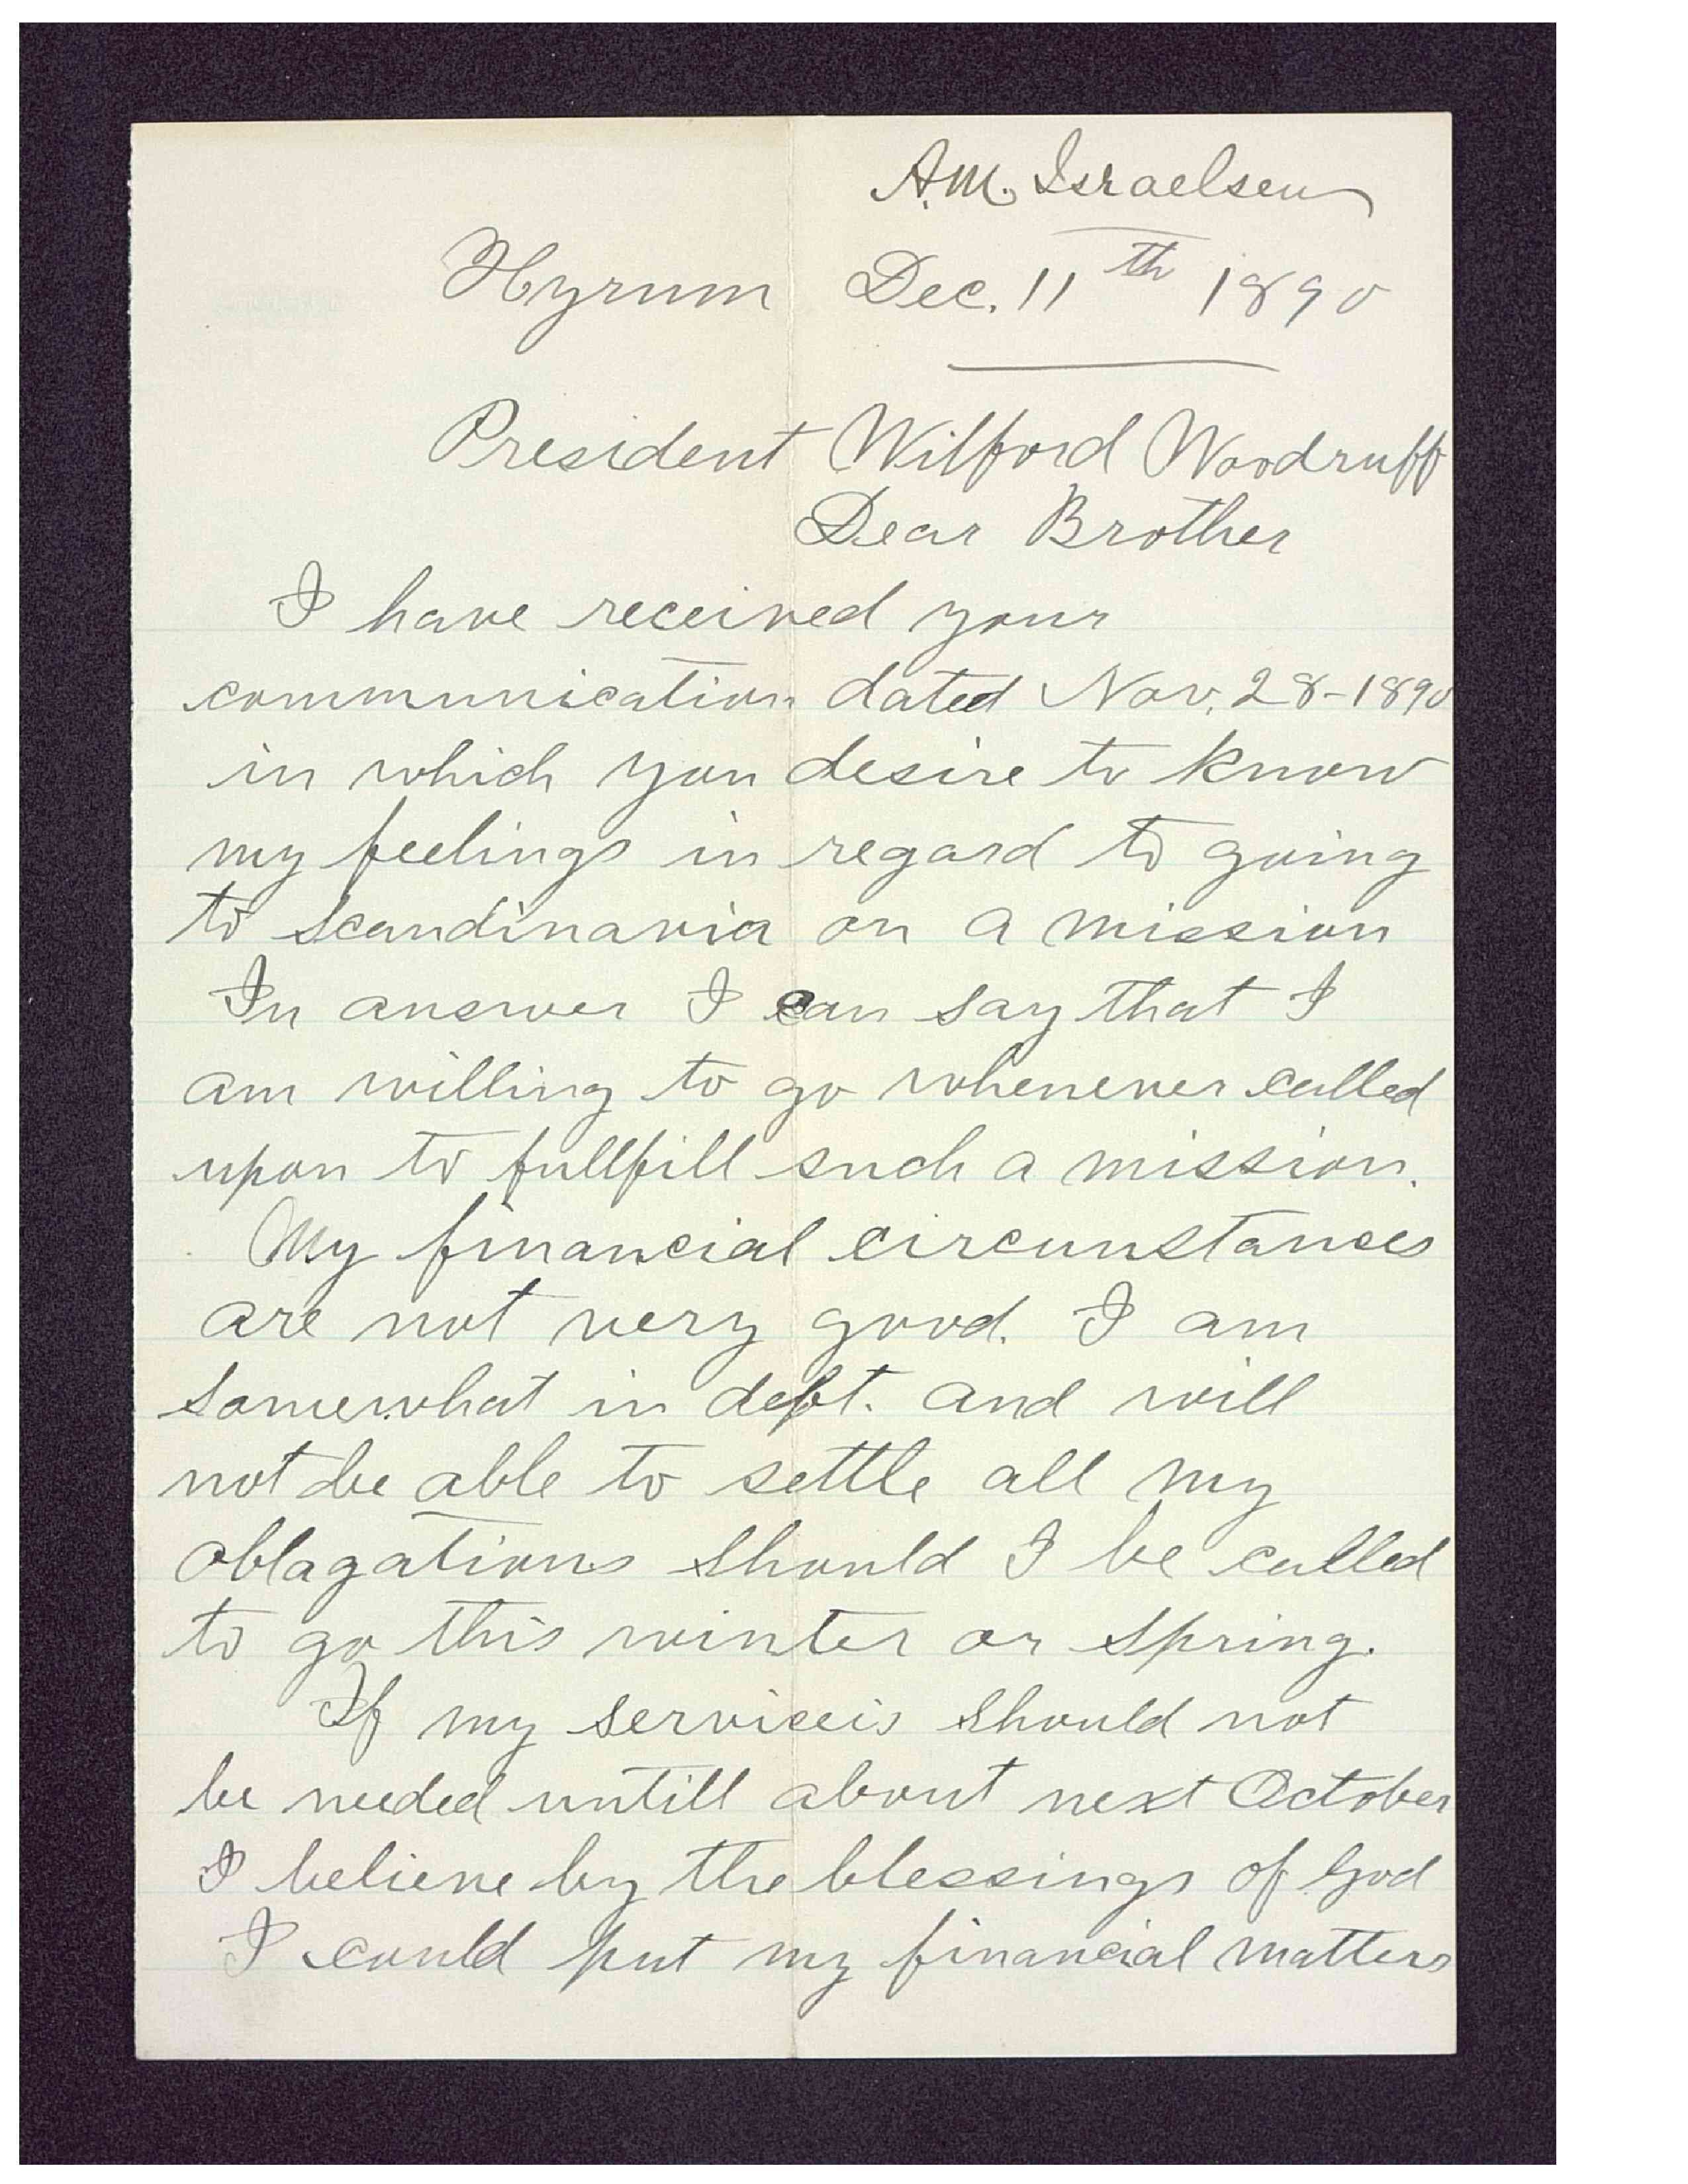 A.M. Israelsen
Hyrum Dec. 11th 1890
President Wilford Woodruff
Dear Brother
I have received your
communication dated Nov. 28-1890
in which you desire to know
my feelings in regard to going
to Scandinavia on a mission
In answer I can say that I
am willing to go whenever called
upon to fullfill such a mission.
My financial circunstances
are not very good. I am
somewhat in debt. and will
not be able to settle all my
oblagations should I be called
to go this winter or spring.
If my serviceis should not
be needed untill about next October
I believe by the blessings of God
I could put my financial matters